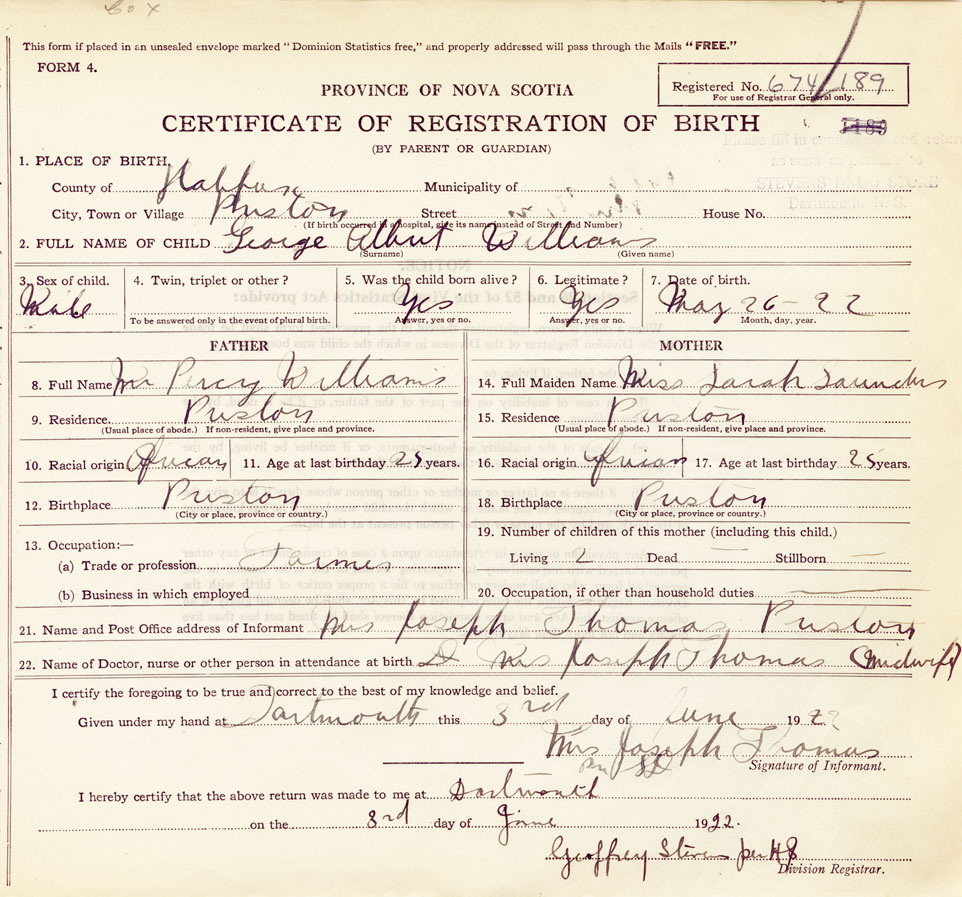 This form if placed in an unsealed envelope marked "Dominion Statistics free," and properly addressed will pass through the Mails "FREE."
FORM 4.
Registered No. 674/189
For use of Registrar General only.
PROVINCE OF NOVA SCOTIA
CERTIFICATE OF REGISTRATION OF BIRTH
1189
(BY PARENT OR GUARDIAN)
Please fill in complete and return
as soon as possible to
STEVENS DRUG STORE
Dartmouth, N. S.
1. PLACE OF BIRTH,
County of Halifax Municipality of
City, Town or Village Preston Street House No.
(If birth occurred in a hospital, give its name instead of Street and Number)
2. FULL NAME OF CHILD George Albert Williams
(Surname) (Given name)
3. Sex of child. Male 4. Twin, triplet or other? 5. Was the child born alive? Yes 6. Legitimate? Yes 7. Date of birth. May 26-22
To be answered only in the event of plural birth. Answer, yes or no. Answer, yes or no. Month, day, year.
FATHER MOTHER
8. Full Name Mr Percy Williams 14. Full Maiden Name Miss Sarah Saunders
9. Residence Preston 15. Residence Preston
(Usual place of abode.) If non-resident, give place and province. (Usual place of abode.) If non-resident, give place and province.
10. Racial origin African 11. Age at last birthday 25 years. 16. Racial origin African 17. Age at last birthday 25 years.
12. Birthplace Preston 18. Birthplace Preston
(City or place, province or country.) (City or place, province or country.)
13. Occupation:— 19. Number of children of this mother (including this child.)
(a) Trade or profession Farmer Living 2 Dead — Stillborn —
(b) Business in which employed 20. Occupation, if other than household duties
21. Name and Post Office address of Informant Mrs Joseph Thomas Preston
22. Name of Doctor, nurse or other person in attendance at birth Mrs Joseph Thomas (Midwife)
I certify the foregoing to be true and correct to the best of my knowledge and belief.
Given under my hand at Dartmouth this 3rd day of June 1922
Mrs Joseph Thomas
Signature of Informant.
I hereby certify that the above return was made to me at Dartmouth
on the 3rd day of June 1922.
Geoffrey Stevens per HS
Division Registrar.